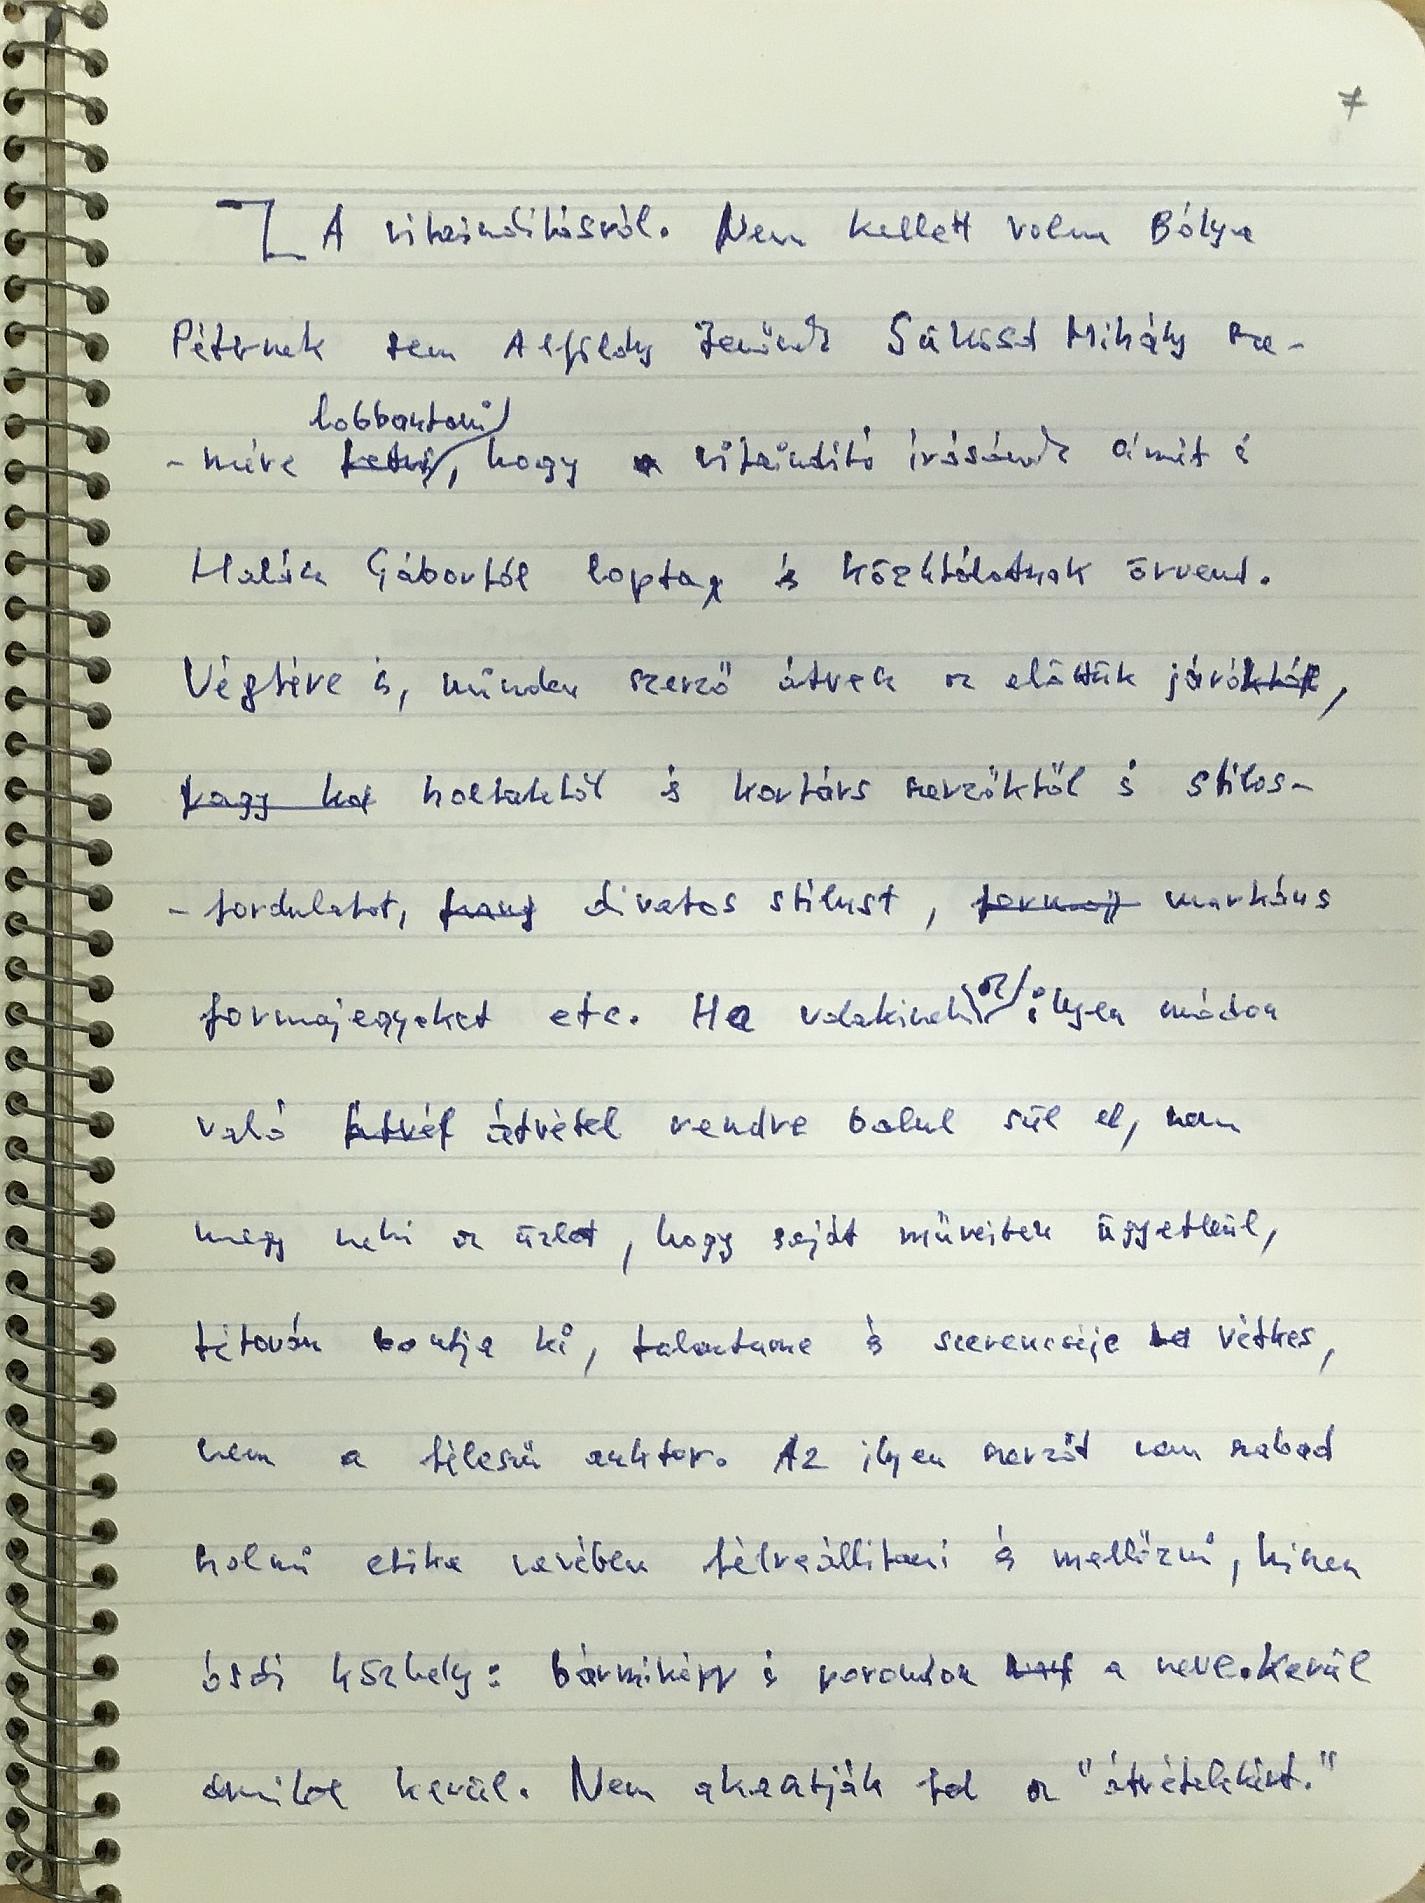 7
A vitaindításról. Nem kellett volna Bólya
Péternek sem Alföldy Jenőnek Sükösd Mihály sze-
lobbantani
-mére vetni, hogy a vitaindító írásának címét is
Gábortól lopta és közutálatnak örvend.
Végtére is, minden szerző átvesz az előttük járóktól,
vagy hol holtaktól és kortárs szerzőktől is stílus-
-fordulatot, divatos stílust, formaj markáns
formajegyeket etc. Ha valakinek az ilyen módon
való átvét átvétel rendre balul sül el, nem
megy neki az üzlet, hogy saját műveiben ügyetlenül,
tétován bontja ki, talentuma és szerencséje vétkes,
nem a féleszű auktor. Az ilyen szerzőt nem szabad
holmi etika nevében félreállítani és mellőzni, hiszen
ósdi közhely: bármiképp is porondon a neve. Kerül
amibe kerül. Nem akasztják fel az "átvételekért."